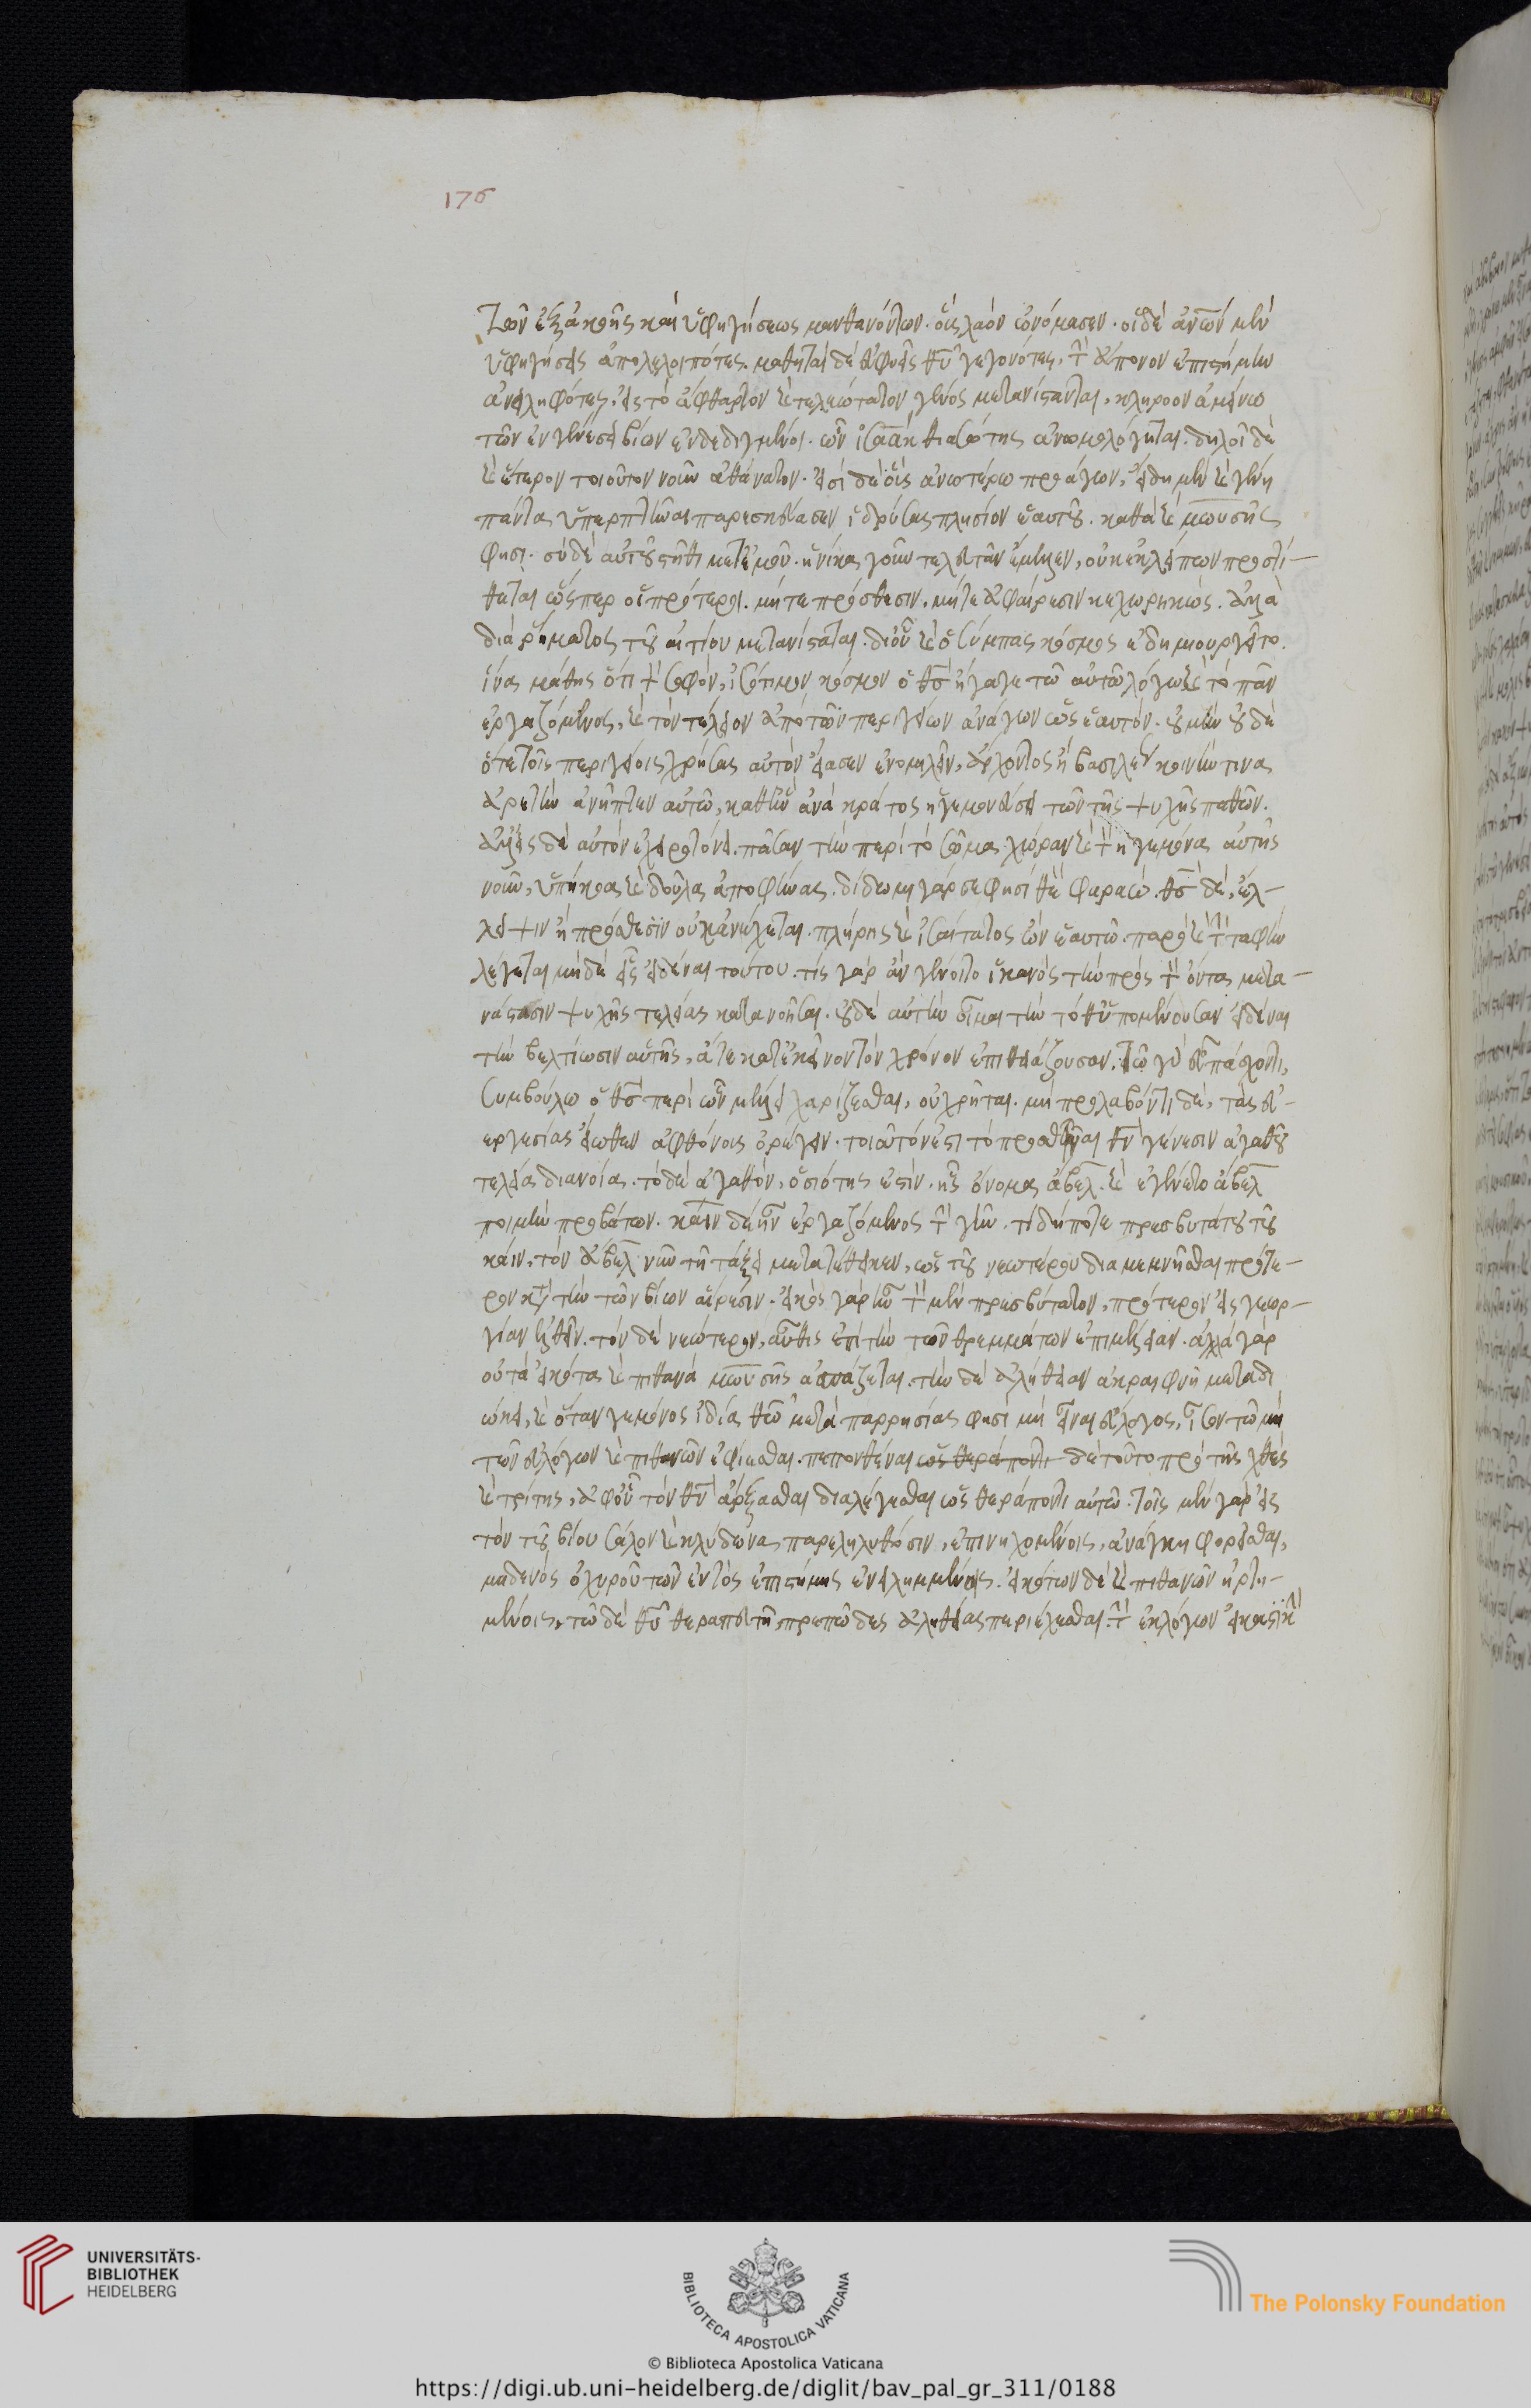 176
τῶν ἐξ ἀκοῆς καὶ ὑφηγήσεως μανθανόντων. οὓς λαὸν ὠνόμασεν. οἱ δὲ ἀνων μὲν
ὑφηγήσεις ἀπολελοιπότες. μαθηταὶ δὲ εὐφυεῖς θυ γεγονότες, τὴν ἄπονον ἐπιστήμην
ἀνειληφότες, εἰς τὸ ἄφθαρτον καὶ τελεώτατον γένος μετανίστανται, κλῆρον ἀμείνω
τῶν ἐν γενέσει βίων ἐνδεδεγμένοι. ὧν ἰσαὰκ θιασώτης ἀνωμολόγηται. δηλοῖ δὲ
καὶ ἕτερον τοιοῦτον νοῦν ἀθάνατον. εἰσὶ δὲ οὓς ἀνωτέρω προάγων, εἴδη μὲν καὶ γένη
πάντα ὑπερπτῆναι παρεσκεύασεν, ἱδρύσας πλησίον ἑαυτοῦ. καθὰ καὶ μωυσῆς
φησι. σὺ δὲ αὐτοῦ στῆθι μετ' ἐμοῦ. ἡνίκα γοῦν τελευτᾶν ἔμελλεν, οὐκ ἐκλείπων προστί-
θεται ὥσπερ οἱ πρότεροι. μήτε πρόσθεσιν. μήτε ἀφαίρεσιν κεχωρηκώς. ἀλλὰ
διὰ ῥήματος τοῦ αἰτίου μετανίσταται. δι' οὗ καὶ ὁ σύμπας κόσμος ἐδημιουργεῖτο.
ἵνα μάθης ὅτι τὸν σοφὸν, ἰσότιμον κόσμον ὁ θς ἤγαγε τῷ αὐτῷ λόγῳ καὶ τὸ πᾶν
ἐργαζόμενος, καὶ τὸν τέλειον ἀπὸ τῶν περιγείων ἀνάγων ὡς ἑαυτόν. οὐ μὴν οὐδὲ
ὅτε τοῖς περιγείοις χρήσας αὐτὸν εἴασεν ἐνομιλεῖν, ἄρχοντος ἢ βασιλέως κοινήν τινα
ἀρετὴν ἀνῆπτεν αὐτῷ, καθ' ἣν ἀνὰ κράτος ἡγεμονεύσει τῶν τῆς ψυχῆς παθῶν.
ἀλλ' εἰς δὲ αὐτὸν ἐχειροτόνει. πᾶσαν τὴν περὶ τὸ σῶμα χώραν καὶ τὸν ἡγεμόνα αὐτῆς
νοῦν, ὑπήκοα καὶ δοῦλα ἀποφήνας. δίδωμι γάρ σε φησὶ θὲ φαραώ. θς δὲ, ἔλ-
λειψιν ἢ πρόσθεσιν οὐκ ἀνέχεται. πλήρης καὶ ἰσαίτατος ὢν ἑαυτῷ. παρὸ καὶ τὴν ταφὴν
λέγεται μηδὲ εἷς εἰδέναι τούτου. τίς γὰρ ἂν γένοιτο ἱκανὸς τὴν πρὸς τὸν ὄντα μετα-
νάστασιν ψυχῆς τελείας κατανοῆσαι. οὐδὲ αὐτὴν οἶμαι τὴν τόθ' ὑπομένουσαν εἰδέναι
τὴν βελτίωσιν αὐτῆς, ἅτε κατ' ἐκεῖνον τὸν χρόνον ἐπιθειάζουσαν. τῷ γὰρ εὖ πάσχοντι,
συμβούλῳ ὁ θς περὶ ὧν μέλλει χαρίζεσθαι, οὐ χρῆται. μὴ προλαβόντι δὲ, τὰς εὐ-
εργεσίας εἴωθεν ἀφθόνοις ὀρέγειν. τοιοῦτόν ἐστι τὸ προσθεῖναι θν γένεσιν ἀγαθοῦ
τελείας διανοίας. τὸ δὲ ἀγαθὸν, ὁσιότης ἐστὶν. ἧς ὄνομα ἄβελ. καὶ ἐγένετο ἄβελ
ποιμὴν προβάτων. κάϊν δὲ ἦν ἐργαζόμενος τὴν γῆν. τί δήποτε πρεσβυτάτου τοῦ
κάιν, τὸν ἄβελ νῦν τῇ τάξει μετατέθεικεν, ὡς τοῦ νεωτέρου διαμεμνῆσθαι πρότε-
ρον κατὰ τὴν τῶν βίων αἵρεσιν. εἰκὸς γὰρ ἦν τὸν μὲν πρεσβύτατον, πρότερον εἰς γεωρ-
γίαν ἐλθεῖν. τὸν δὲ νεώτερον, αὖθις ἐπὶ τὴν τῶν θρεμμάτων ἐπιμέλειαν. ἀλλὰ γὰρ
οὐ τὰ εἰκότα καὶ πιθανὰ μωυσῆς ἀσπάζεται. τὴν δὲ ἀλήθειαν ἀκραιφνῆ μεταδι
ώκει, καὶ ὅταν γεμόνος ἰδίᾳ θῶ μετὰ παρρησίας φησὶ μὴ εἶναι εὔλογος, ἴσον τῷ μὴ
τῶν εὐλόγων καὶ πιθανῶν ἐφίεσθαι. πεπονθέναι ὡς θεράποντι δὲ τοῦτο πρὸ τῆς χθὲς
καὶ τρίτης, ἀφ' οὗ τὸν θν ἄρξασθαι διαλέγεσθαι ὡς θεράποντι αὐτῷ. τοῖς μὲν γὰρ εἰς
τὸν τοῦ βίου σάλον καὶ κλύδωνα παρεληλυθόσιν, ἐπινηχομένοις, ἀνάγκη φορεῖσθαι,
μηδενὸς ὀχυροῦ τῶν ἐντὸς ἐπιστήμης ἐνειλημμένοις. εἰκότων δὲ καὶ πιθανῶν ἠρτη-
μένοις, τῷ δὲ θυ θεραπευτῇ, πρεπῶδες ἀληθείας περιέχεσθαι. τὴν ἐκ λόγων
UNIVERSITÄTS-
BIBLIOTHEK
HEIDELBERG
BIBLIOTECA APOSTOLICA VATICANA
The Polonsky Foundation
© Biblioteca Apostolica Vaticana
https://digi.ub.uni-heidelberg.de/diglit/bav_pal_gr_311/0188